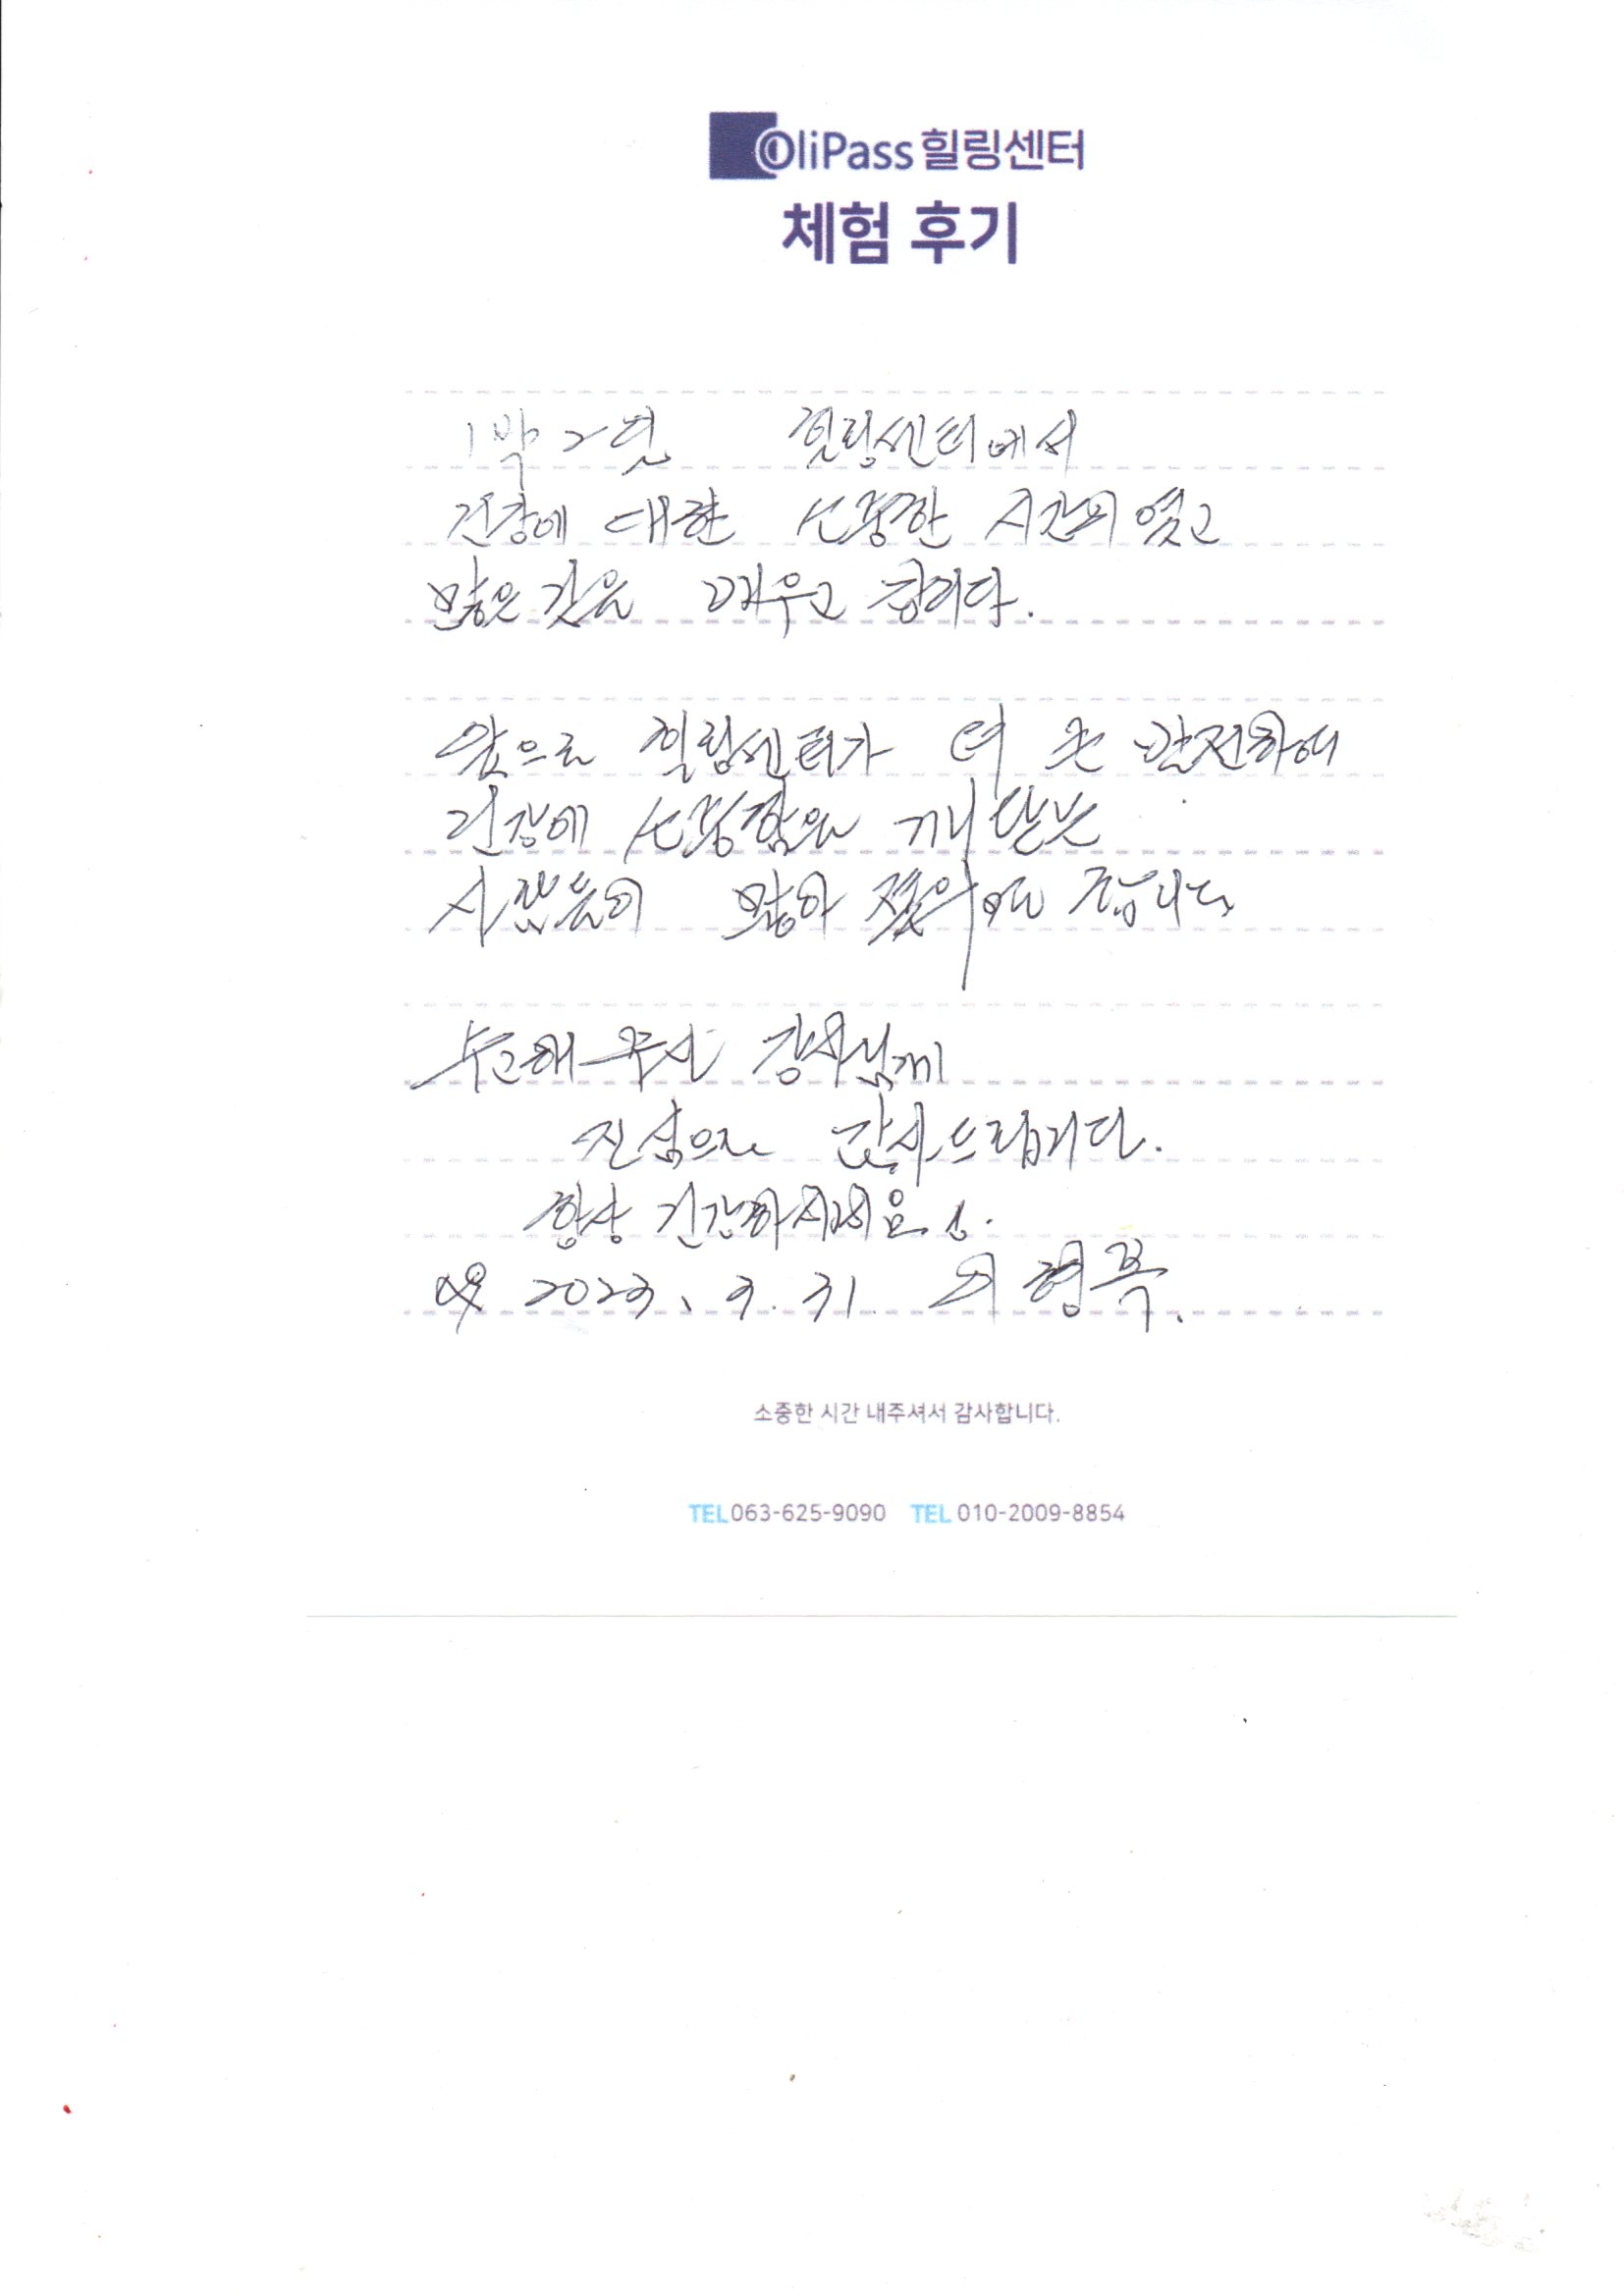 OliPass 힐링센터
체험 후기
1박 2일 힐링센터에서
건강에 대한 소중한 시간이 였고
많은 것을 배우고 갑니다.
앞으로 힐링센터가 더 큰 발전하여
건강에 소중함을 깨닫는
사람들이 많아 졌으면 합니다
수고해주신 강사님께
진심으로 감사드립니다.
항상 건강하세요.
2023. 3. 31.
소중한 시간 내주셔서 감사합니다.
TEL 063-625-9090 TEL 010-2009-8854